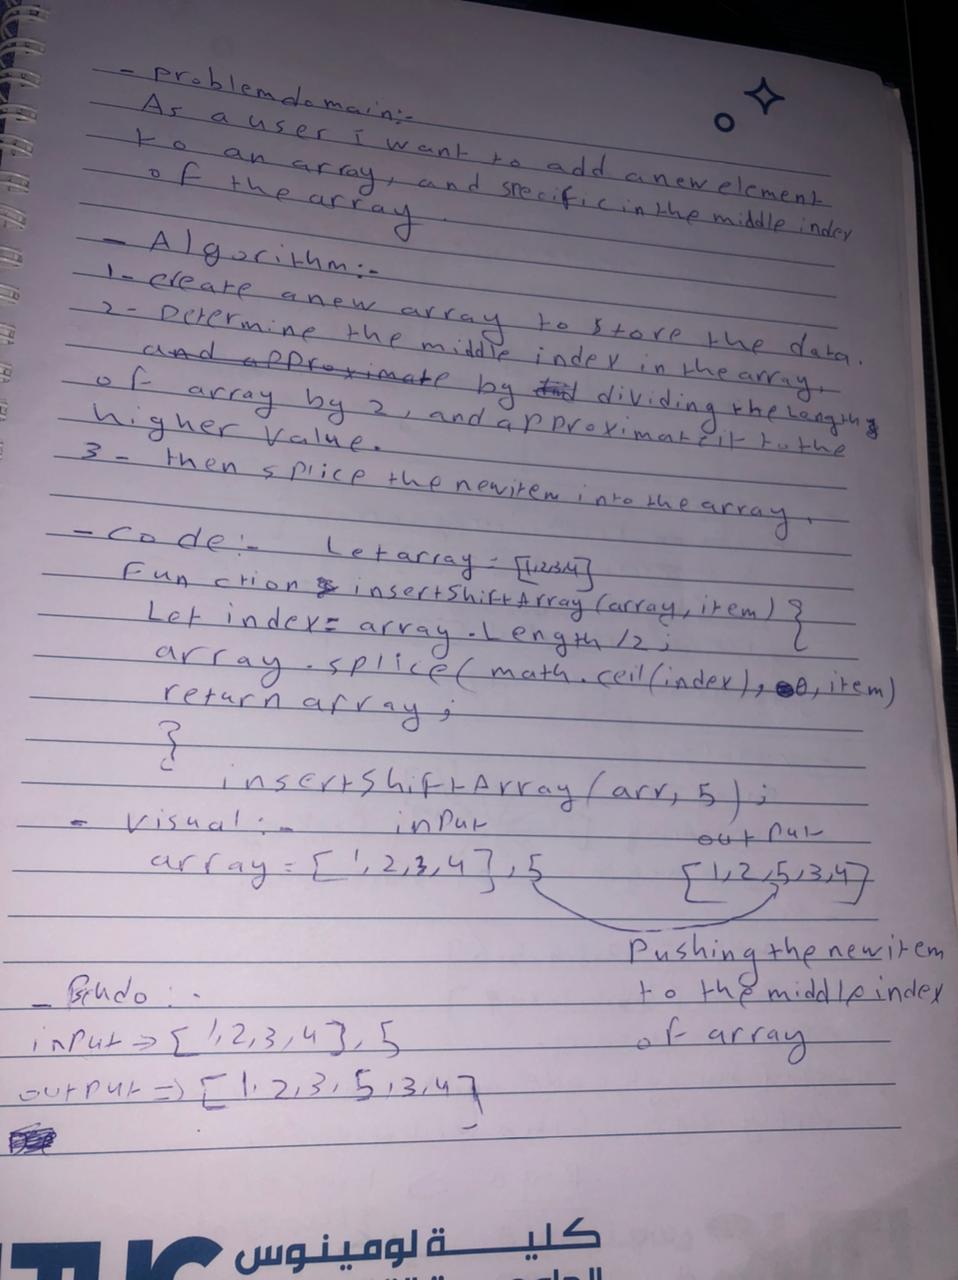 - problemdomain:-
As a user i want to add a new element
to an array, and specific in the middle index
of the array.
- Algorithm:-
1- create a new array to store the data.
2- Determine the middle index in the array,
and approximate by dividing the length
of array by 2, and approximate it to the
higher value.
3- then splice the new item into the array.
- Code:- Let array = [1,2,3,4]
Function insertShiftArray(array, item) {
Let index = array.Length /2;
array.splice(math.ceil(index), 0, item)
return array;
}
insertShiftArray(arr, 5);
- Visual:- input output
array = [1,2,3,4], 5 [1,2,5,3,4]
Pushing the new item
to the middle index
of array
input => [1,2,3,4], 5
output => [1,2,3,5,3,4]
كليـة لومينوس